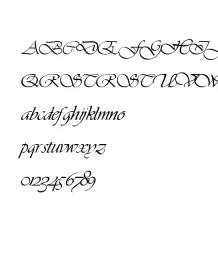 ABCDEFGHIJ
QRSTRSTUVW
abcdefghijklmno
pqrstuvwxyz
0123456789